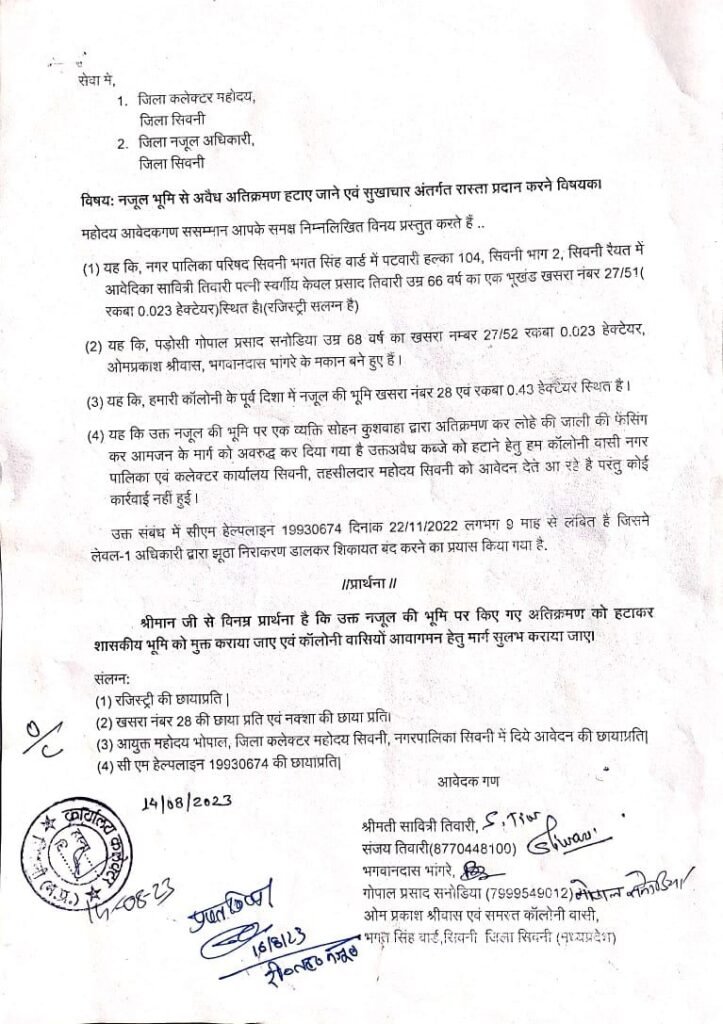 सेवा मे,
1. जिला कलेक्टर महोदय,
जिला सिवनी
2. जिला नजूल अधिकारी,
जिला सिवनी
विषय: नजूल भूमि से अवैध अतिक्रमण हटाए जाने एवं सुखाचार अंतर्गत रास्ता प्रदान करने विषयक।
महोदय आवेदकगण ससम्मान आपके समक्ष निम्नलिखित विनय प्रस्तुत करते हैं ..
(1) यह कि, नगर पालिका परिषद सिवनी भगत सिंह वार्ड में पटवारी हल्का 104, सिवनी भाग 2, सिवनी रैयत में
आवेदिका सावित्री तिवारी पत्नी स्वर्गीय केवल प्रसाद तिवारी उम्र 66 वर्ष का एक भूखंड खसरा नंबर 27/51(
रकबा 0.023 हेक्टेयर)स्थित है।(रजिस्ट्री सलग्न है)
(2) यह कि, पड़ोसी गोपाल प्रसाद सनोडिया उम्र 68 वर्ष का खसरा नम्बर 27/52 रकबा 0.023 हेक्टेयर,
ओमप्रकाश श्रीवास, भगवानदास भांगरे के मकान बने हुए हैं।
(3) यह कि, हमारी कॉलोनी के पूर्व दिशा में नजूल की भूमि खसरा नंबर 28 एवं रकबा 0.43 हेक्टेयर स्थित है।
(4) यह कि उक्त नजूल की भूमि पर एक व्यक्ति सोहन कुशवाहा द्वारा अतिक्रमण कर लोहे की जाली की फेंसिंग
कर आमजन के मार्ग को अवरुद्ध कर दिया गया है उक्तअवैध कब्जे को हटाने हेतु हम कॉलोनी वासी नगर
पालिका एवं कलेक्टर कार्यालय सिवनी, तहसीलदार महोदय सिवनी को आवेदन देते आ रहे है परंतु कोई
कार्रवाई नहीं हुई।
उक्त संबंध में सीएम हेल्पलाइन 19930674 दिनाक 22/11/2022 लगभग 9 माह से लंबित है जिसमे
लेवल-1 अधिकारी द्वारा झूठा निराकरण डालकर शिकायत बंद करने का प्रयास किया गया है.
//प्रार्थना //
श्रीमान जी से विनम्र प्रार्थना है कि उक्त नजूल की भूमि पर किए गए अतिक्रमण को हटाकर
शासकीय भूमि को मुक्त कराया जाए एवं कॉलोनी वासियों आवागमन हेतु मार्ग सुलभ कराया जाए।
संलग्न:
(1) रजिस्ट्री की छायाप्रति |
(2) खसरा नंबर 28 की छाया प्रति एवं नक्शा की छाया प्रति।
(3) आयुक्त महोदय भोपाल, जिला कलेक्टर महोदय सिवनी, नगरपालिका सिवनी में दिये आवेदन की छायाप्रति|
(4) सी एम हेल्पलाइन 19930674 की छायाप्रति|
O/C
आवेदक गण
14/08/2023
श्रीमती सावित्री तिवारी, S. Tiw
संजय तिवारी(8770448100) Stiwari
भगवानदास भांगरे,
गोपाल प्रसाद सनोडिया (7999549012) गोपाल सनोडिया
ओम प्रकाश श्रीवास एवं समस्त कॉलोनी वासी,
भगत सिंह वार्ड,सिवनी जिला सिवनी (मध्यप्रदेश)
कार्यालय कलेक्टर
(म.प्र.)
14-08-23
16/8/23